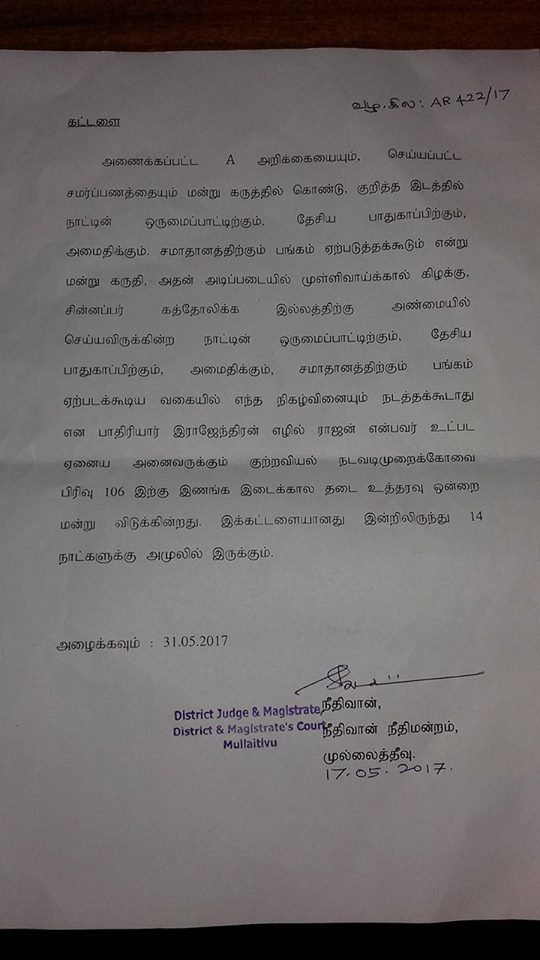 வழ.கில: AR 422/17
கட்டளை
அணைக்கப்பட்ட A அறிக்கையையும், செய்யப்பட்ட
சமர்ப்பணத்தையும் மன்று கருத்தில் கொண்டு, குறித்த இடத்தில்
நாட்டின் ஒருமைப்பாட்டிற்கும், தேசிய பாதுகாப்பிற்கும்,
அமைதிக்கும். சமாதானத்திற்கும் பங்கம் ஏற்படுத்தக்கூடும் என்று
மன்று கருதி, அதன் அடிப்படையில் முள்ளிவாய்க்கால் கிழக்கு,
சின்னப்பர் கத்தோலிக்க இல்லத்திற்கு அண்மையில்
செய்யவிருக்கின்ற நாட்டின் ஒருமைப்பாட்டிற்கும், தேசிய
பாதுகாப்பிற்கும், அமைதிக்கும், சமாதானத்திற்கும் பங்கம்
ஏற்படக்கூடிய வகையில் எந்த நிகழ்வினையும் நடத்தக்கூடாது
என பாதிரியார் இராஜேந்திரன் எழில் ராஜன் என்பவர் உட்பட
ஏனைய அனைவருக்கும் குற்றவியல் நடவடிமுறைக்கோவை
பிரிவு 106 இற்கு இணங்க இடைக்கால தடை உத்தரவு ஒன்றை
மன்று விடுக்கின்றது. இக்கட்டளையானது இன்றிலிருந்து 14
நாட்களுக்கு அமுலில் இருக்கும்.
அழைக்கவும் : 31.05.2017
District Judge & Magistrate,
District & Magistrate's Court
Mullaitivu
நீதிவான்,
நீதிவான் நீதிமன்றம்,
முல்லைத்தீவு.
17.05.2017.